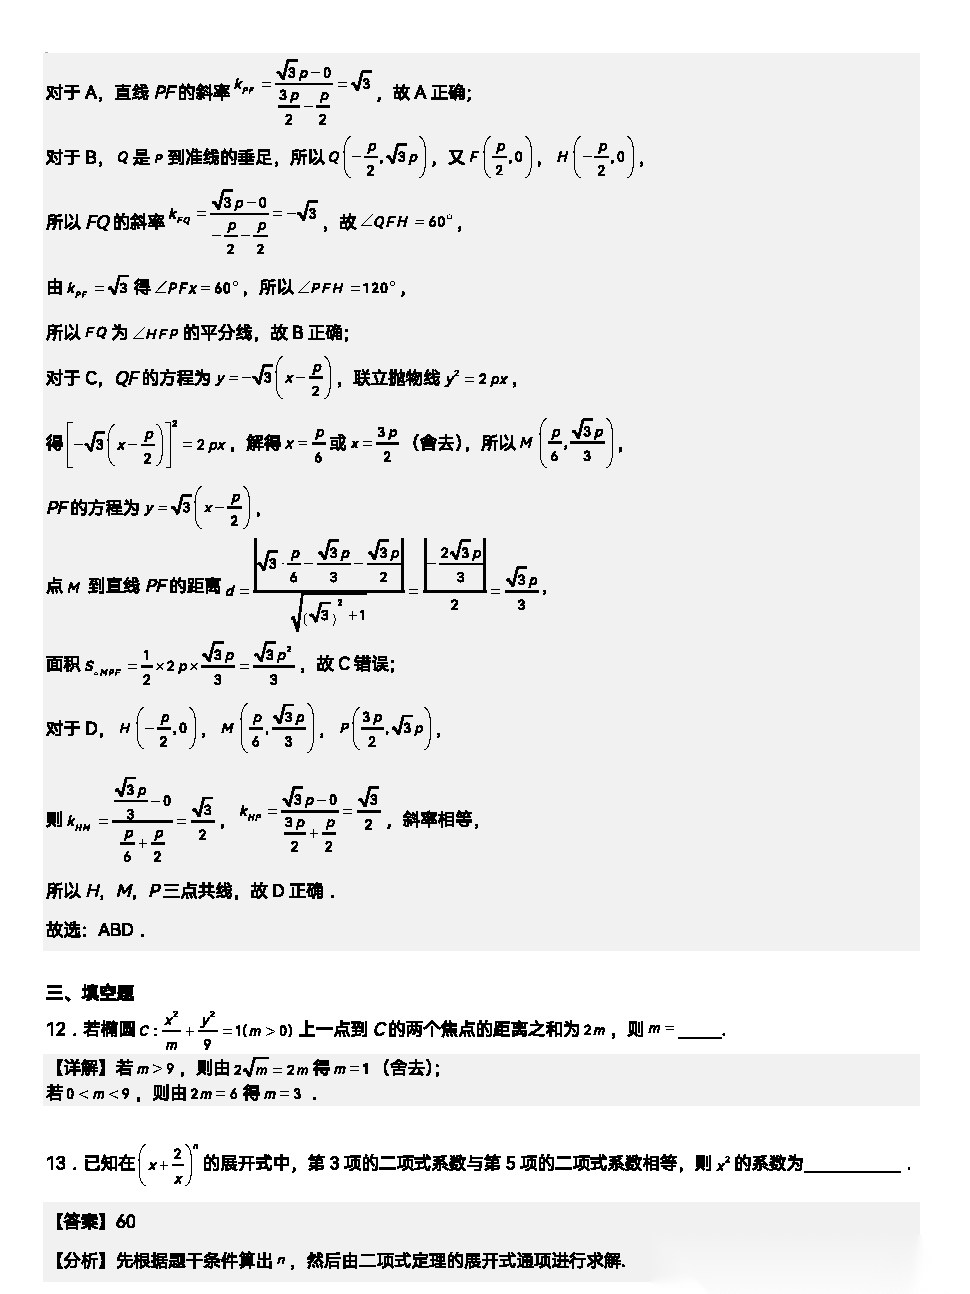 对于 A，直线 PF 的斜率 k_{PF} = \frac{\sqrt{3}p-0}{\frac{3p}{2}-\frac{p}{2}} = \sqrt{3}，故 A 正确；
对于 B，Q 是 P 到准线的垂足，所以 Q(-\frac{p}{2},\sqrt{3}p)，又 F(\frac{p}{2},0)，H(-\frac{p}{2},0)，
所以 FQ 的斜率 k_{FQ} = \frac{\sqrt{3}p-0}{-\frac{p}{2}-\frac{p}{2}} = -\sqrt{3}，故 ∠QFH = 60°，
由 k_{PF} = \sqrt{3} 得 ∠PFx = 60°，所以 ∠PFH = 120°，
所以 FQ 为 ∠HFP 的平分线，故 B 正确；
对于 C，QF 的方程为 y = -\sqrt{3}(x-\frac{p}{2})，联立抛物线 y^2 = 2px，
得 [-\sqrt{3}(x-\frac{p}{2})]^2 = 2px，解得 x = \frac{p}{6} 或 x = \frac{3p}{2}（舍去），所以 M(\frac{p}{6},\frac{\sqrt{3}p}{3})，
PF 的方程为 y = \sqrt{3}(x-\frac{p}{2})，
点 M 到直线 PF 的距离 d = \frac{|\sqrt{3}·\frac{p}{6}-\frac{\sqrt{3}p}{3}-\frac{\sqrt{3}p}{2}|}{\sqrt{(\sqrt{3})^2+1}} = \frac{|-\frac{2\sqrt{3}p}{3}|}{2} = \frac{\sqrt{3}p}{3}，
面积 S_{△MPF} = \frac{1}{2}×2p×\frac{\sqrt{3}p}{3} = \frac{\sqrt{3}p^2}{3}，故 C 错误；
对于 D，H(-\frac{p}{2},0)，M(\frac{p}{6},\frac{\sqrt{3}p}{3})，P(\frac{3p}{2},\sqrt{3}p)，
则 k_{HM} = \frac{\frac{\sqrt{3}p}{3}-0}{\frac{p}{6}+\frac{p}{2}} = \frac{\sqrt{3}}{2}，k_{HP} = \frac{\sqrt{3}p-0}{\frac{3p}{2}+\frac{p}{2}} = \frac{\sqrt{3}}{2}，斜率相等，
所以 H，M，P 三点共线，故 D 正确．
故选：ABD．
三、填空题
12．若椭圆 C: \frac{x^2}{m}+\frac{y^2}{9}=1(m>0) 上一点到 C 的两个焦点的距离之和为 2m，则 m = _____.
【详解】若 m>9，则由 2\sqrt{m}=2m 得 m=1（舍去）；
若 0<m<9，则由 2m=6 得 m=3．
13．已知在 (x+\frac{2}{x})^n 的展开式中，第 3 项的二项式系数与第 5 项的二项式系数相等，则 x^2 的系数为__________．
【答案】60
【分析】先根据题干条件算出 n，然后由二项式定理的展开式通项进行求解.